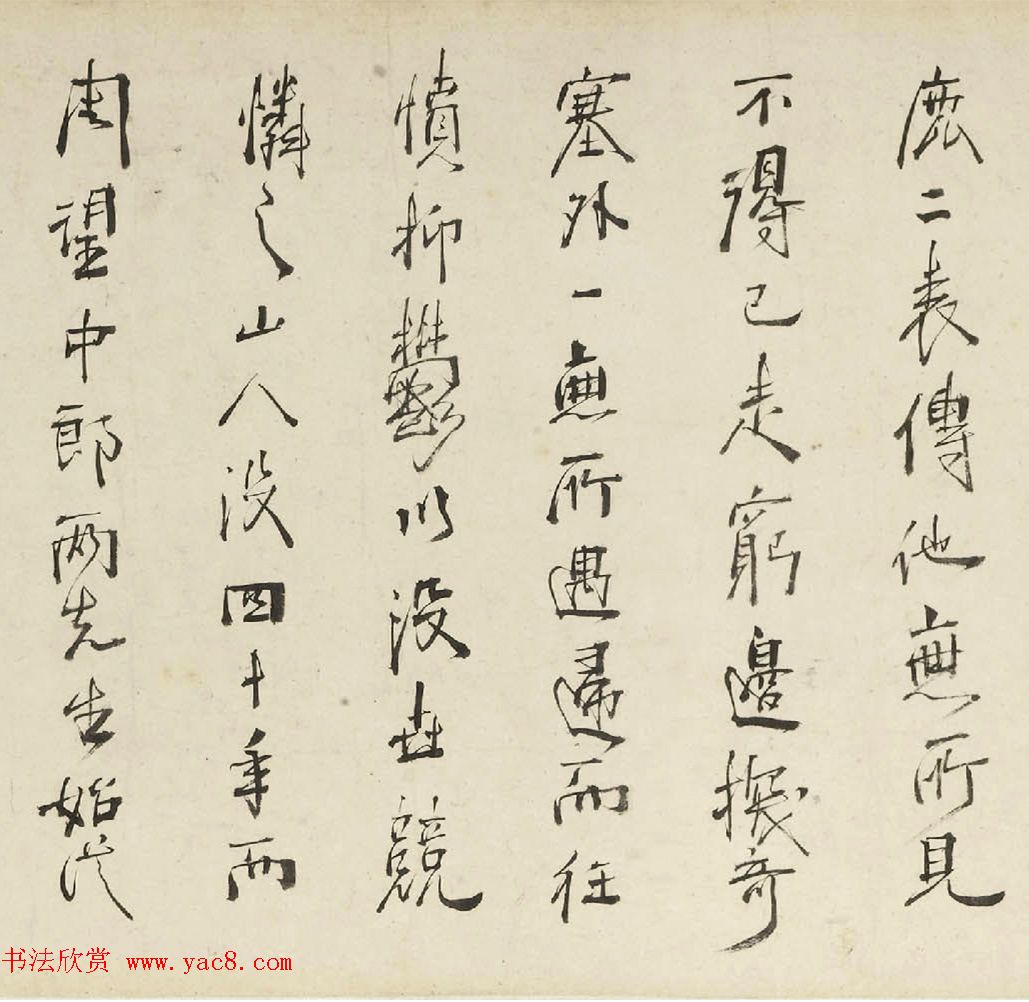 鹿二表傳他無所見
不得已走窮邊探奇
塞外一無所遇歸而往
憤抑鬱以没世競
憐之山人没四十年而
周望中郎兩先生始從
书法欣赏 www.yac8.com